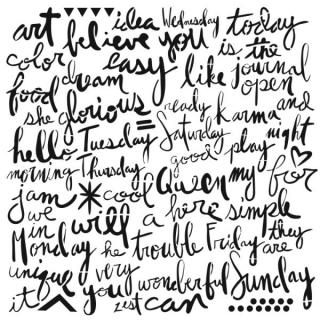 art idea Wednesday today
believe you is the
color easy like journal
food dream open
she glorious ready karma and
hello Tuesday = Saturday night
morning Thursday good play
jam * cool Queen my for
we will a here simple
in Monday he trouble Friday they are
unique very wonderful Sunday
it you just can